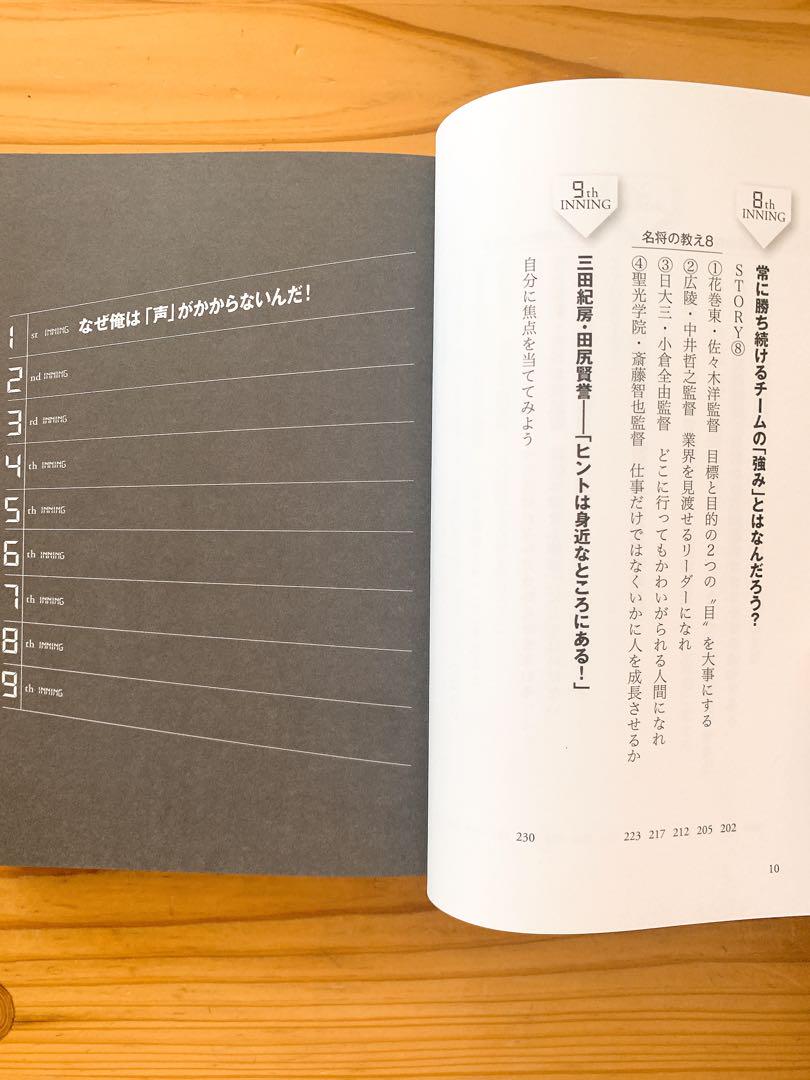 8th INNING
常に勝ち続けるチームの「強み」とはなんだろう?
STORY⑧
名将の教え8
①花巻東・佐々木洋監督 目標と目的の2つの〝目〟を大事にする
②広陵・中井哲之監督 業界を見渡せるリーダーになれ
③日大三・小倉全由監督 どこに行ってもかわいがられる人間になれ
④聖光学院・斎藤智也監督 仕事だけではなくいかに人を成長させるか
223 217 212 205 202
9th INNING
三田紀房・田尻賢誉――「ヒントは身近なところにある!」
自分に焦点を当ててみよう
230
10
1st INNING なぜ俺は「声」がかからないんだ!
2nd INNING
3rd INNING
4th INNING
5th INNING
6th INNING
7th INNING
8th INNING
9th INNING